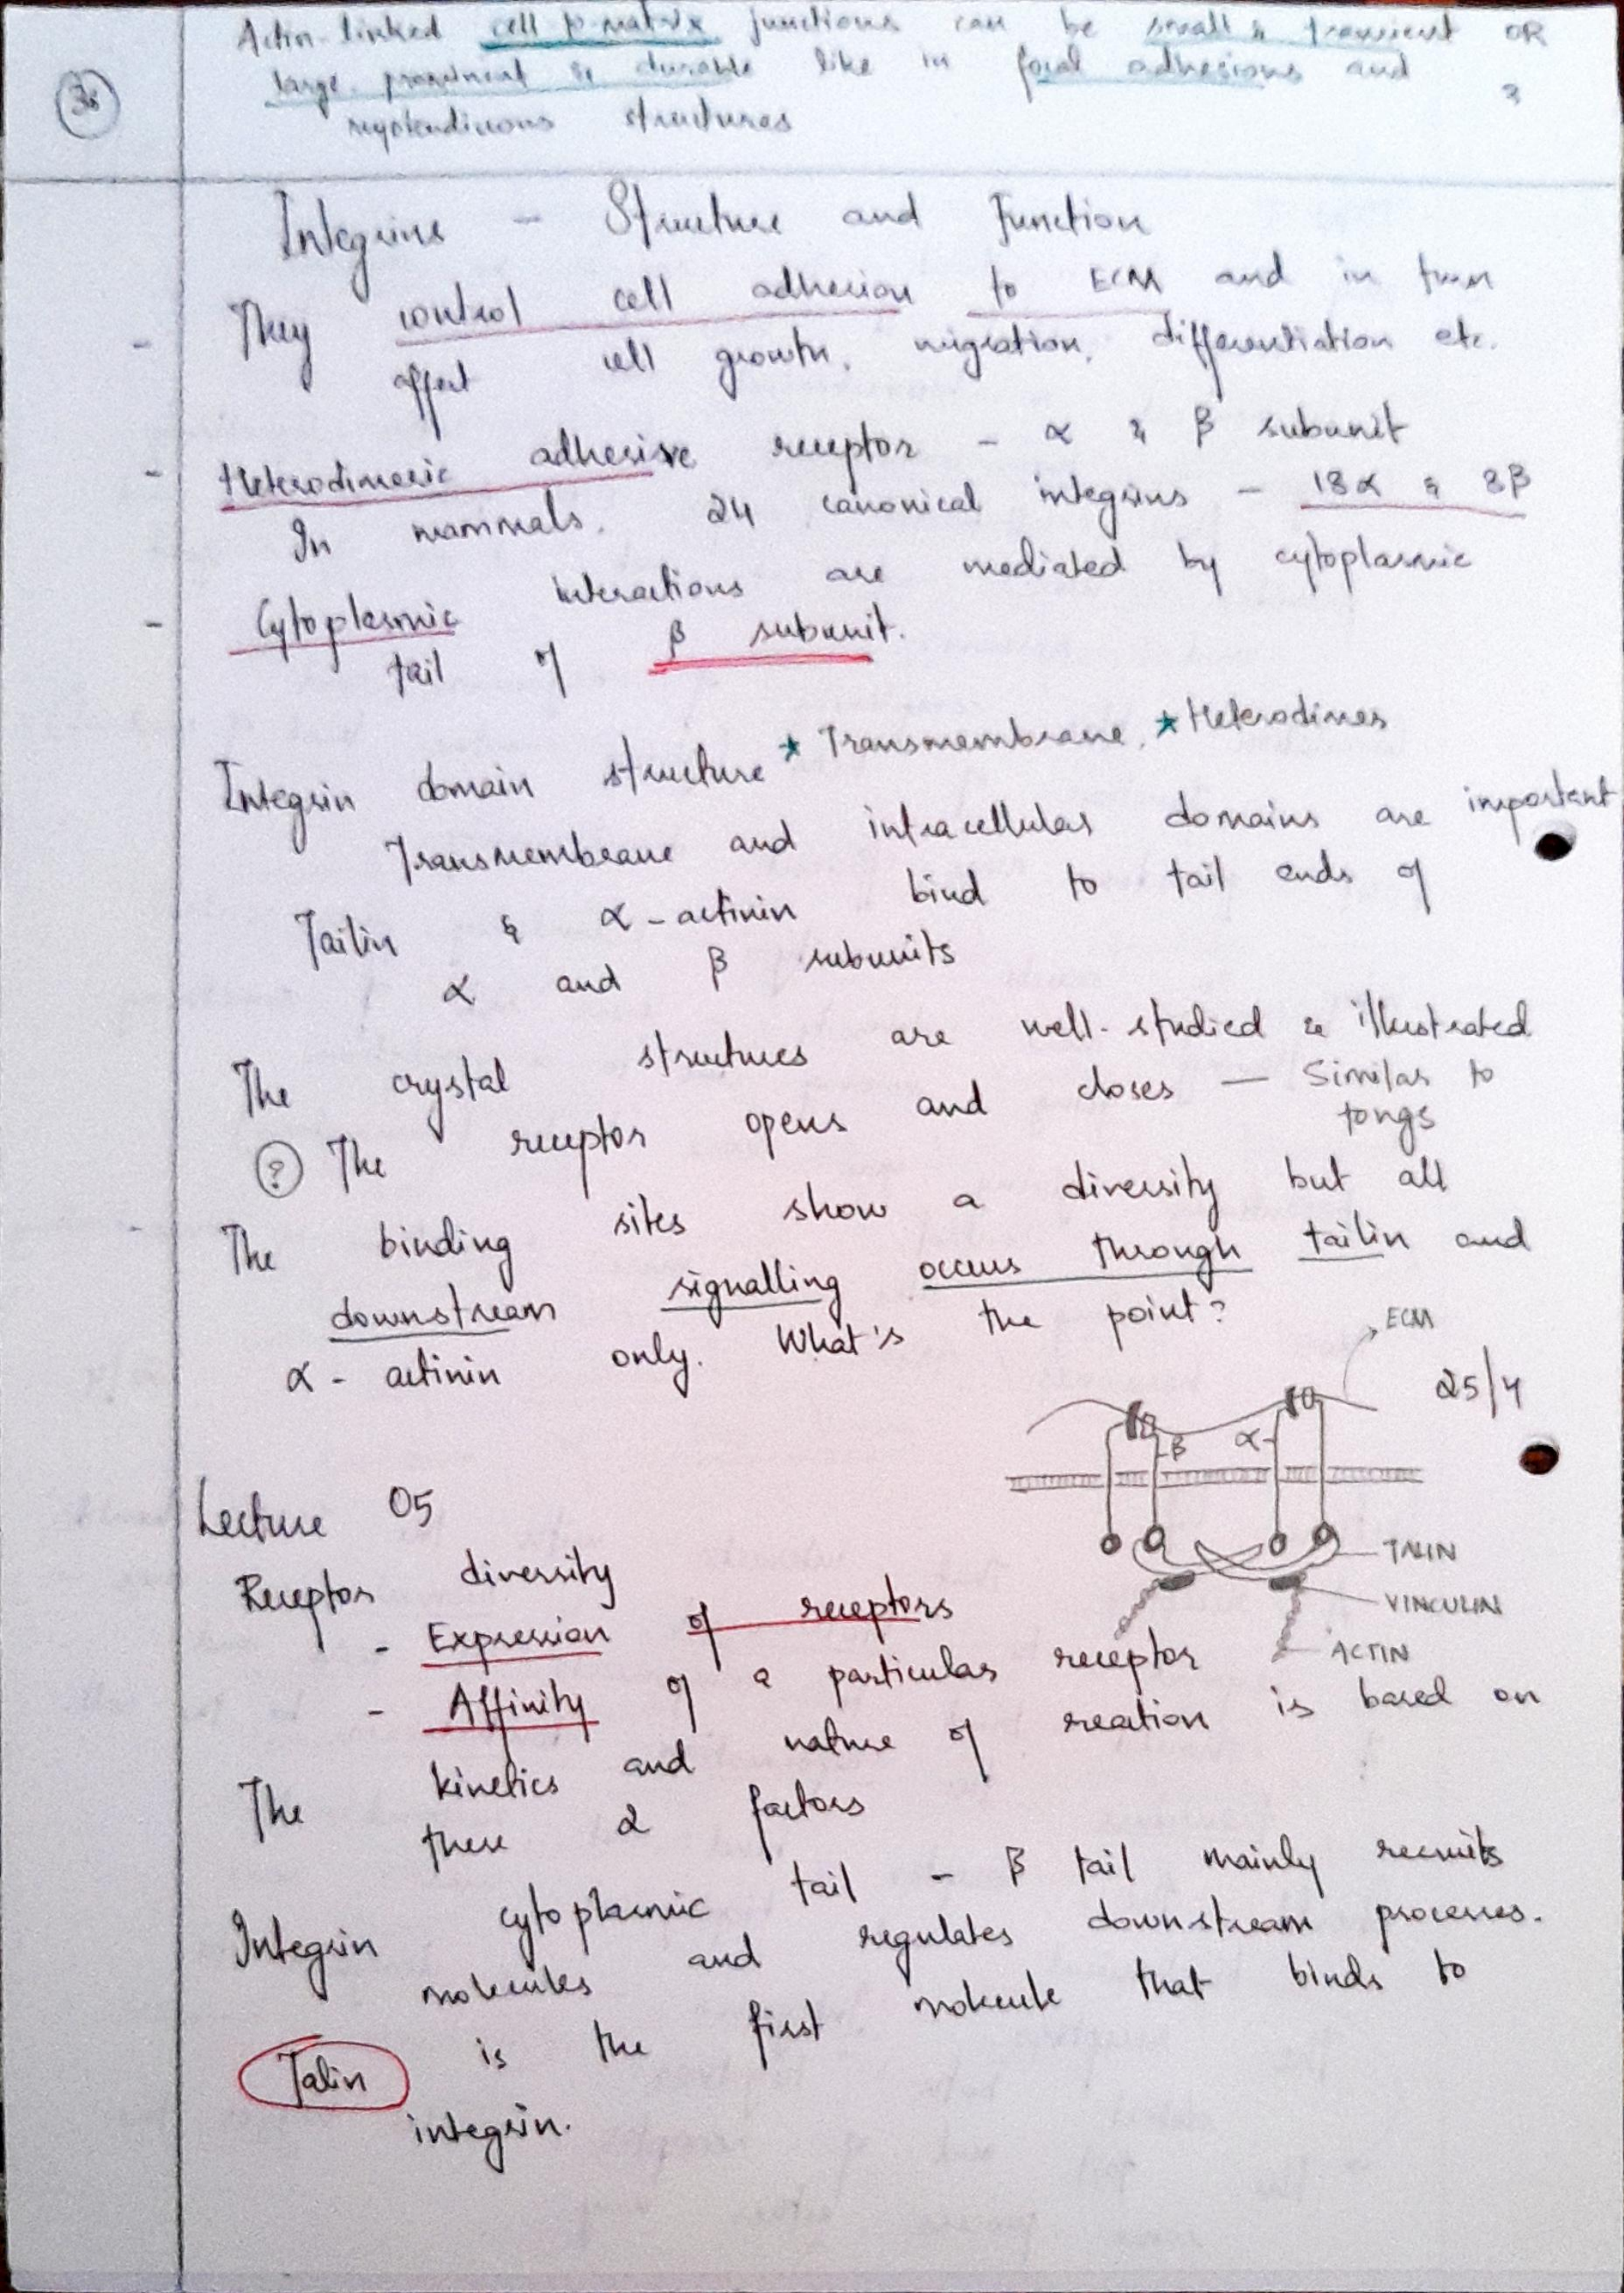 Actin-linked cell to matrix junctions can be small & transient OR
large, prominent & durable like in focal adhesions and
myotendinous structures
Integrins - Structure and Function
- They control cell adhesion to ECM and in turn
affect cell growth, migration, differentiation etc.
- Heterodimeric adhesive receptor - α & β subunit
In mammals, 24 canonical integrins - 18α & 8β
- Cytoplasmic interactions are mediated by cytoplasmic
tail of β subunit.
Integrin domain structure * Transmembrane, * Heterodimes
Transmembrane and intracellular domains are important
Tailin & α-actinin bind to tail ends of
α and β subunits
The crystal structures are well-studied & illustrated
? The receptor opens and closes — Similar to
tongs
- The binding sites show a diversity but all
downstream signalling occurs through tailin and
α-actinin only. What's the point?
ECM
25/4
β α
Lecture 05
TALIN
VINCULIN
ACTIN
Receptor diversity
- Expression of receptors
- Affinity of a particular receptor
The kinetics and nature of reaction is based on
these 2 factors
Integrin cytoplasmic tail - β tail mainly recruits
molecules and regulates downstream processes.
Talin is the first molecule that binds to
integrin.